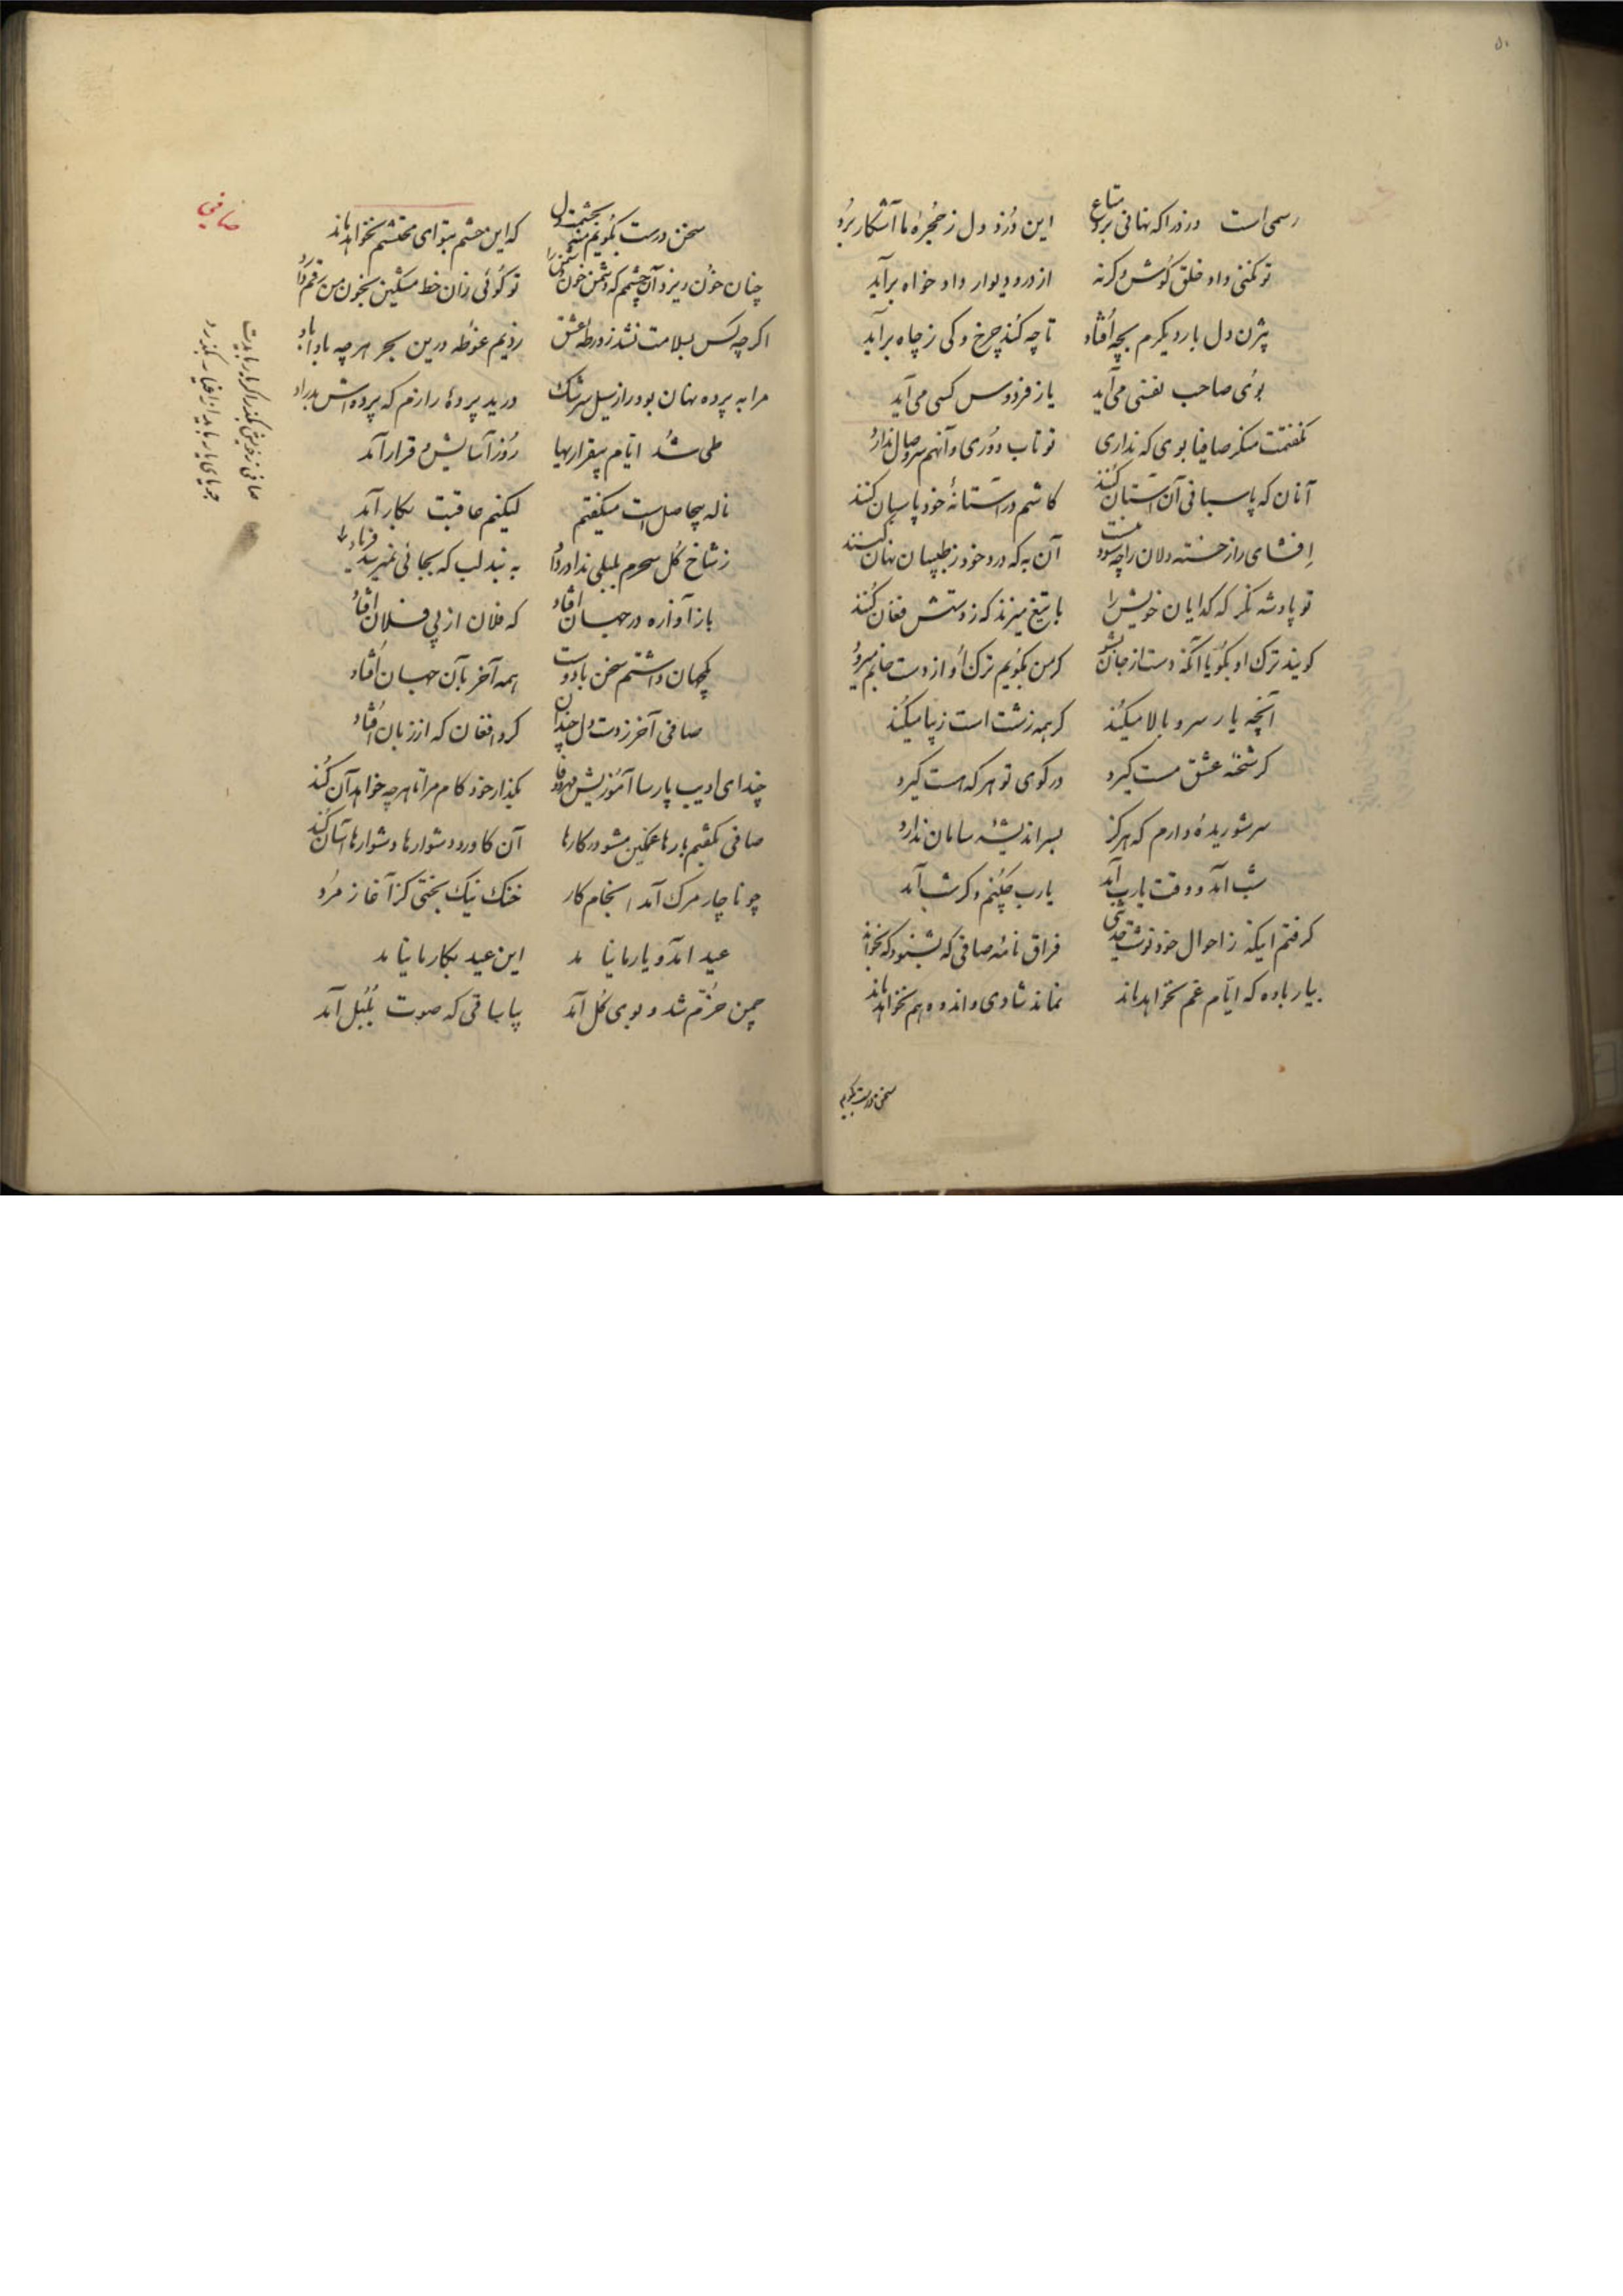 ۵۰
رسمی است دزد را که نهانی برد متاع این دزد دل ز حجرهٔ ما آشکار برد
تو نکنی داد خلق گوش و گرنه از در و دیوار داد خواه برآید
بیژن دل بار دیگرم بچه افتاد تا چه کند چرخ و کی ز چاه برآید
بوی صاحب نفسی می‌آید یا ز فردوس کسی می‌آید
گفتمت منگر صافیا بوی که نداری تو تاب دوری و آنهم سر وصال ندارد
آنان که پاسبانی آن آستان کنند کاشم در آستانهٔ خود پاسبان کنند
افشای راز خسته دلان را چه سود آن به که درد خود ز طبیبان نهان کنند
تو پادشه نگر که گدایان خویش را با تیغ میزند که ز دستش فغان کنند
گویند ترک او بگو یا آنکه دست از جان بشو گر من بگویم ترک او از دست جانم میرود
آنچه یار سرو بالا میکند گر همه زشت است زیبا میکند
گر شحنهٔ عشق مست گیرد در کوی تو هر که هست گیرد
سر شوریدهٔ دارم که هرگز بسر اندیشهٔ سامان ندارد
شب آمد و وقت یارب آمد یارب چکنم دگر شب آمد
گرفتم اینکه ز احوال خود نوشت حدیثی فراق نامهٔ صافی که بشنود که بخواند
بیار باده که ایام غم نخواهد ماند نماند شادی و اندوه هم نخواهد ماند
سخن درست بگویم
صافی
سخن درست بگویم منه بحشمت دل که این حشم بتو ای محتشم نخواهد ماند
چنان خون ریزد آن چشمم که دشمن خون دشمن را تو گوئی زان خط مشکین بخون من رقم دارد
اگر چه کس بسلامت نشد ز ورطهٔ عشق زدیم غوطه درین بحر هر چه باداباد
مرا به پرده نهان بود راز سیل سرشک درید پردهٔ رازم که پرده‌اش بدراد
طی شد ایام بیقراریها روز آسایش و قرار آمد
ناله بیحاصل است میگفتم لیکنم عاقبت بکار آمد
ز شاخ گل سحرم بلبلی ندا در داد به بند لب که بجائی نمیرسد فریاد
باز آوازه در جهان افتاد که فلان از پی فلان افتاد
یکجهان داشتم سخن با دوست همه آخر بآن جهان افتاد
صافی آخر ز دست دل چندان کرد افغان که از زبان افتاد
چند ای ادیب پارسا آموزیش مهر و وفا بگذار خود کام مرا تا هر چه خواهد آن کند
صافی بگفتم بارها غمگین مشو در کارها آن کاورد دشوارها دشوارها آسان کند
چو ناچار مرگ آمد انجام کار خنک نیک بختی کز آغاز مرد
عید آمد و یار ما نیامد این عید بکار ما نیامد
چمن خرم شد و بوی گل آمد بیا ساقی که صوت بلبل آمد
صافی ز خویش بگذر اگر یار بایدت
جویای یار باید از اغیار بگذرد